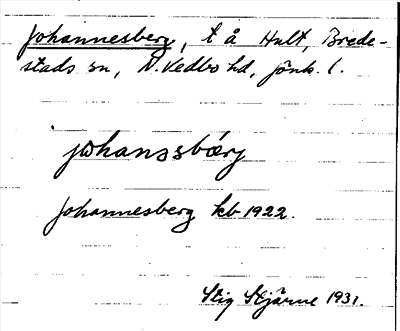 Johannesberg, t å Hult, Brede-
stads sn, N. Vedbo hd, Jönk. l.
jωhanəsbæ̀rj
Johannesberg kb 1922.
Stig Stjärne 1931.